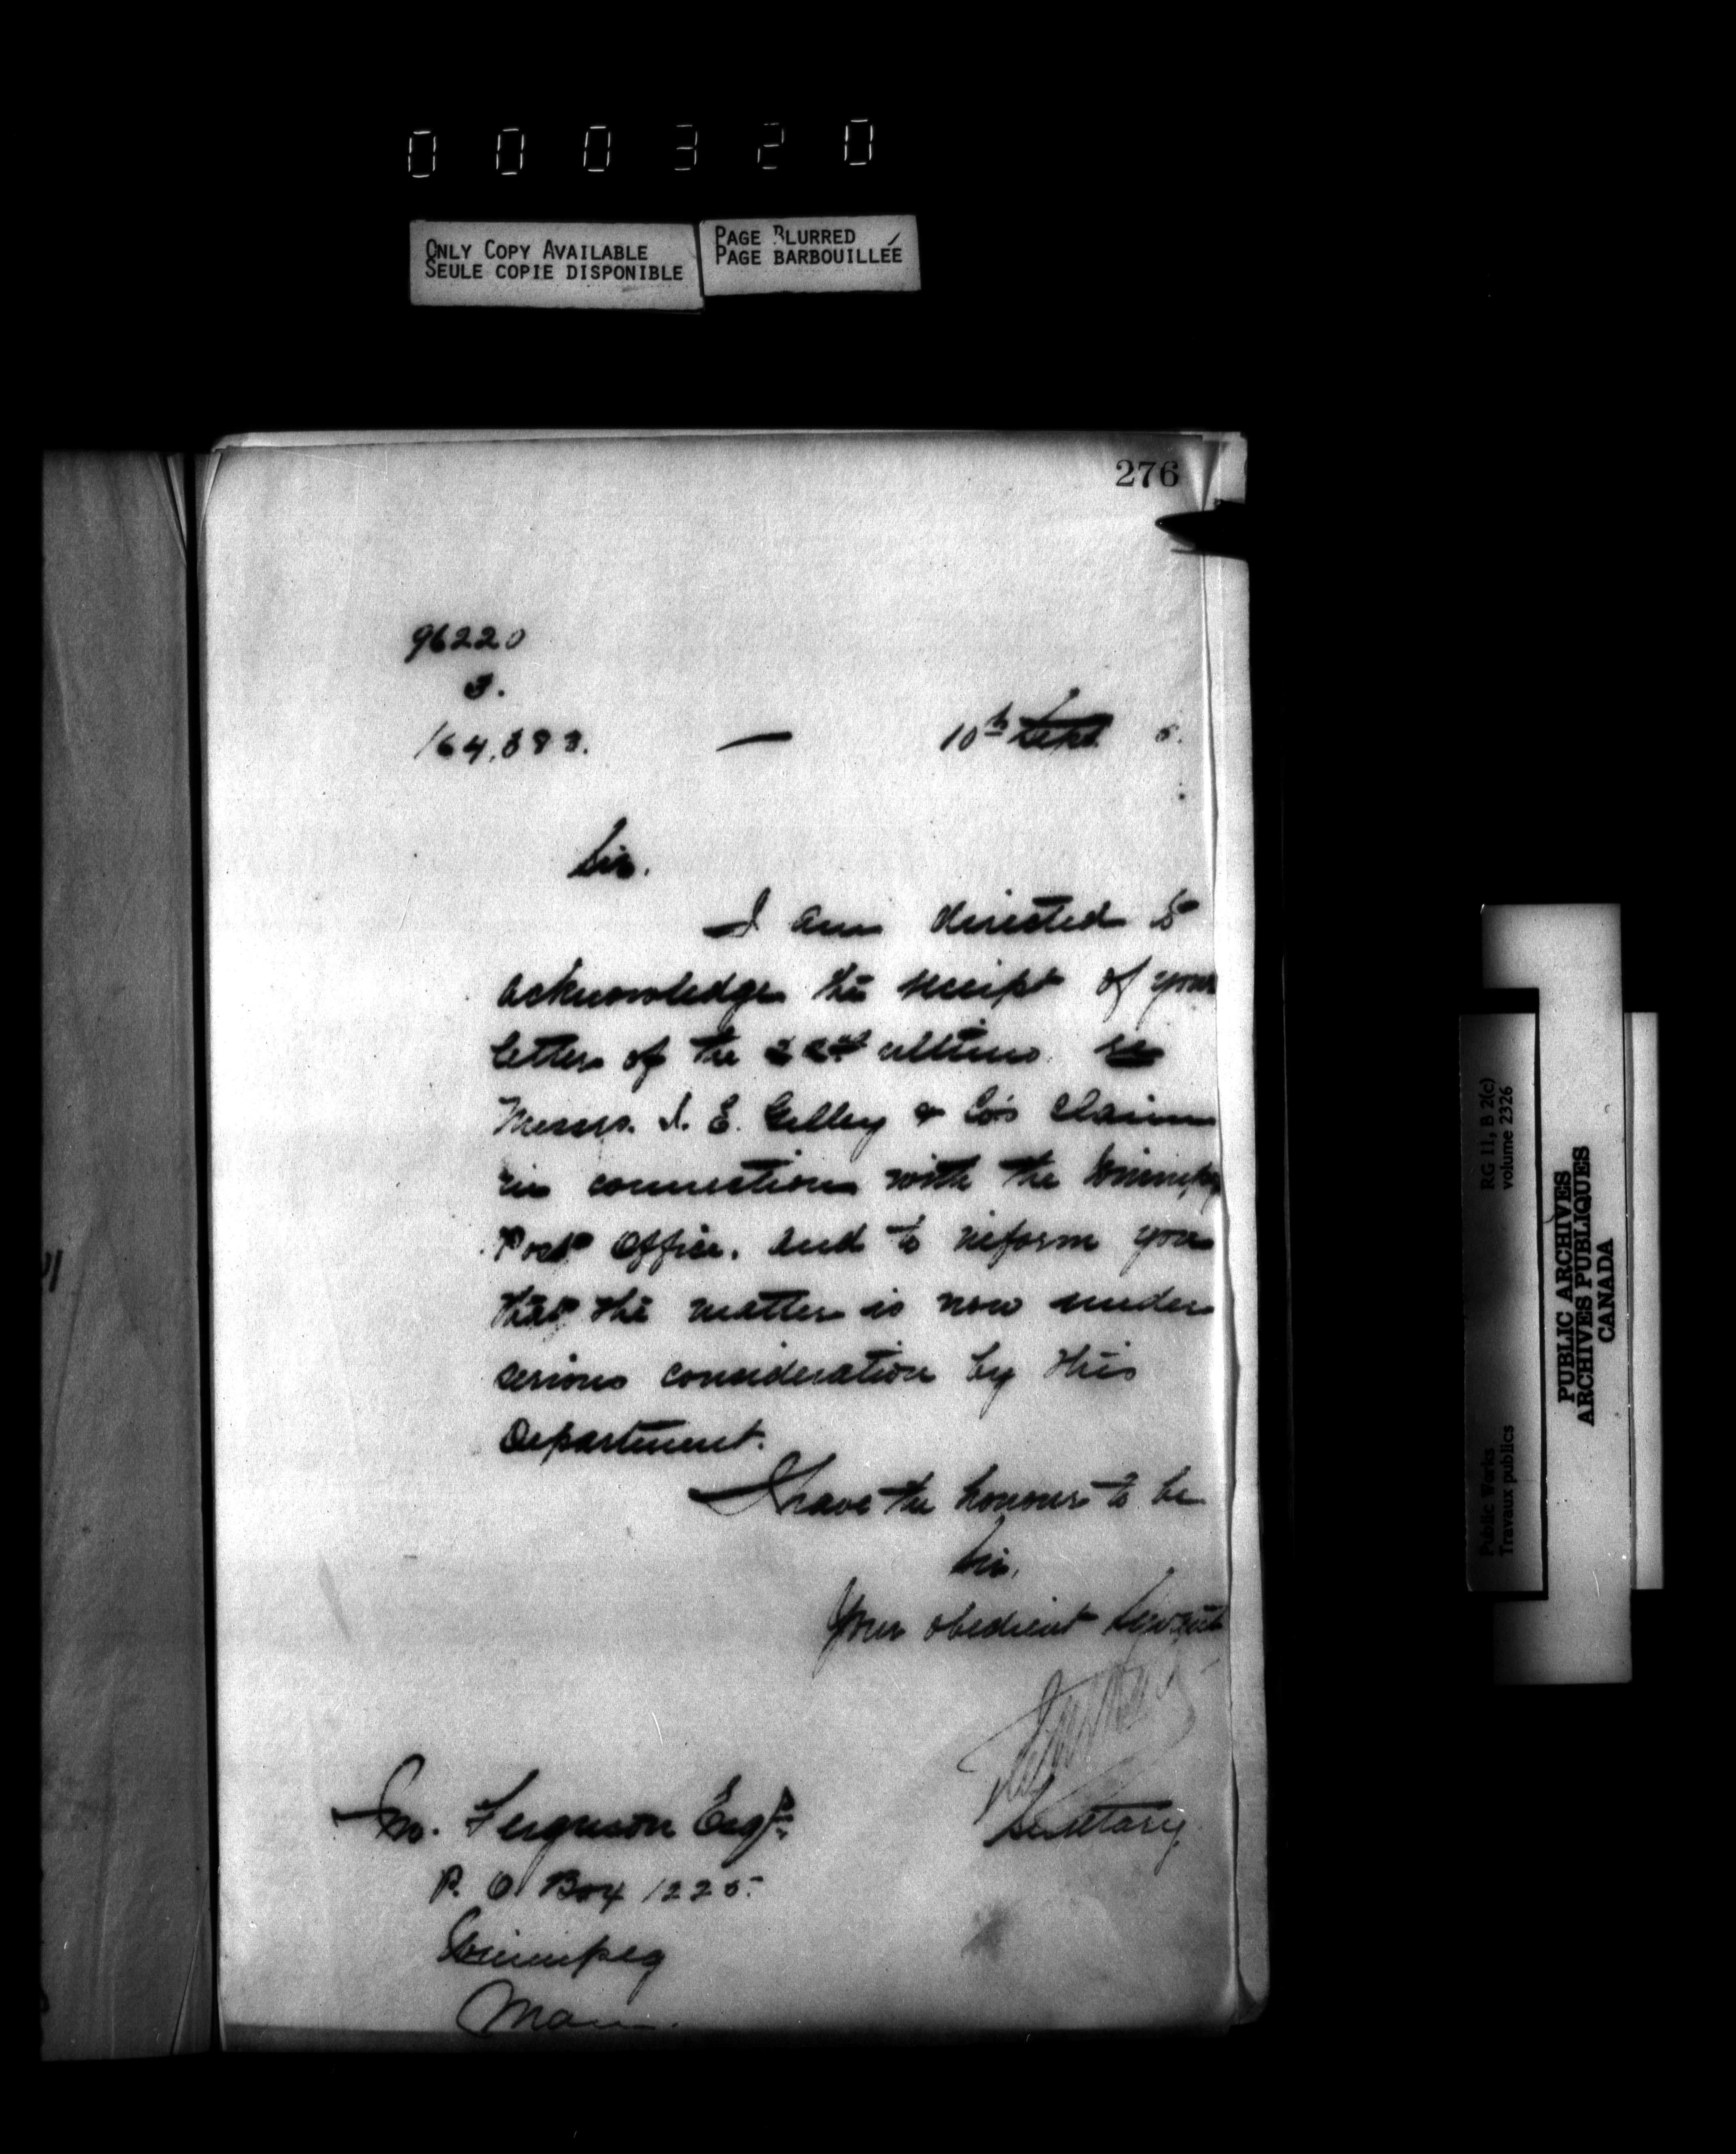 000320
ONLY COPY AVAILABLE
SEULE COPIE DISPONIBLE
PAGE BLURRED
PAGE BARBOUILLÉE
276
96220
3.
— 10th Sept
Sir.
I am directed to
acknowledge the receipt of your
letter of the ultimo re
Messrs. E. Gelley & Co's claim
in connection with the Winnipeg
Post Office. and to inform you
that the matter is now under
serious consideration by this
Department.
I have the honour to be
Sir,
Your obedient Servant
Secretary.
Ferguson Esq.
P. O. Box 1225.
Winnipeg
Man.
Public Works
Travaux publics
RG 11, B 2(c)
volume 2326
PUBLIC ARCHIVES
ARCHIVES PUBLIQUES
CANADA